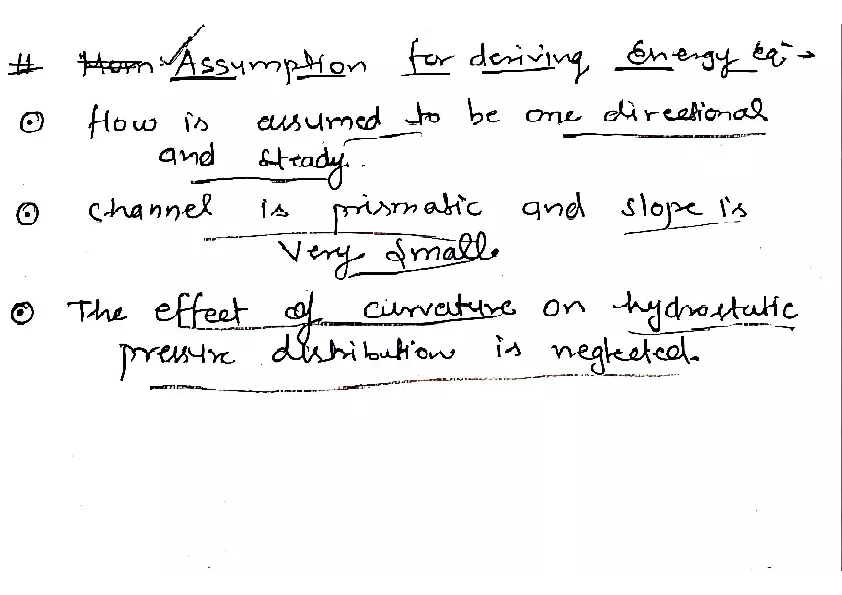 # Assumption for deriving Energy eqⁿ →
⊙ flow is assumed to be one directional
and steady.
⊙ channel is prismatic and slope is
very small.
⊙ The effect of curvature on hydrostatic
pressure distribution is neglected.